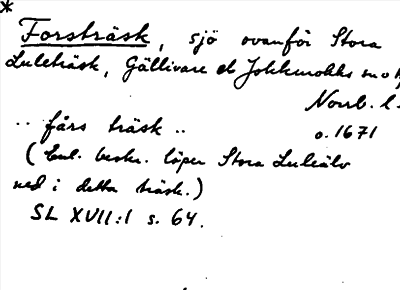 *
Forsträsk, sjö ovanför Stora
Luleträsk, Gällivare o Jokkmokks sn o
Norrb. l.
.. fårs träsk .. o. 1671
(Enl. beskr. löper Stora Luleälv
ned i detta träsk.)
SL XVII:1 s. 64.